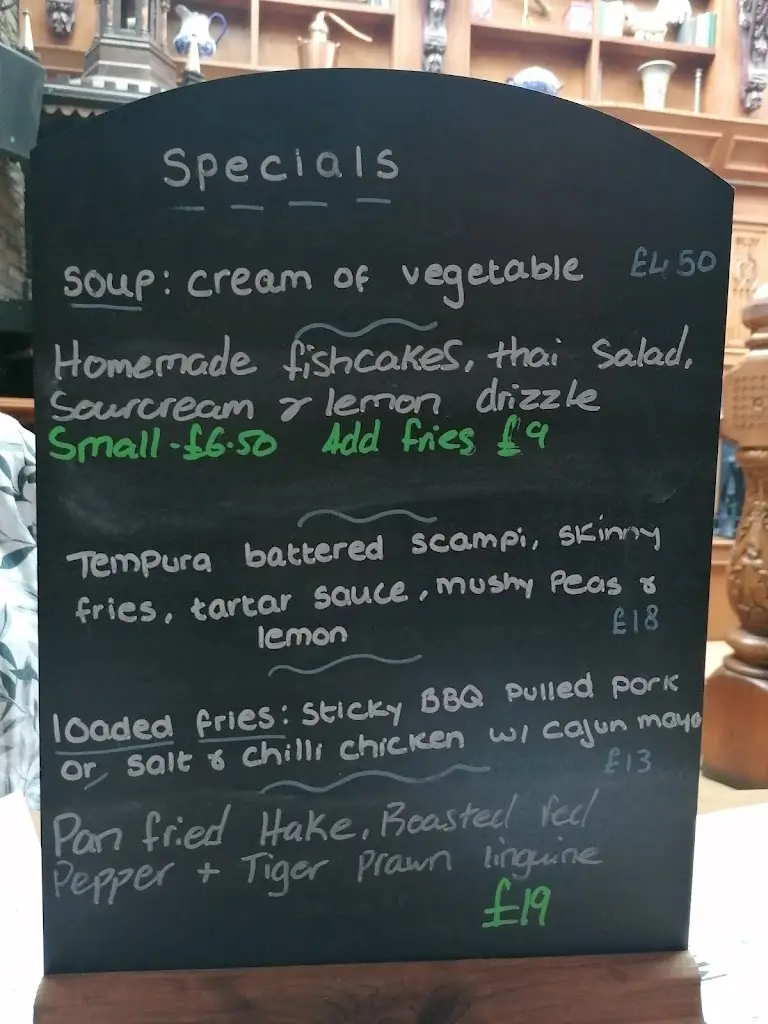 Specials
Soup: cream of vegetable £4.50
Homemade fishcakes, thai Salad,
Sourcream & lemon drizzle
Small - £6.50 Add fries £9
Tempura battered scampi, skinny
fries, tartar sauce, mushy Peas &
lemon £18
loaded fries: sticky BBQ pulled pork
or salt & chilli chicken w/ cajun mayo
£13
Pan fried Hake, Roasted red
Pepper + Tiger prawn linguine
£19